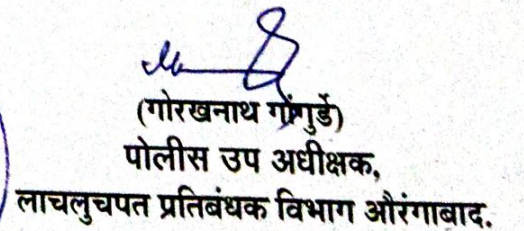 (गोरखनाथ गोंगुर्डे)
पोलीस उप अधीक्षक,
लाचलुचपत प्रतिबंधक विभाग औरंगाबाद.